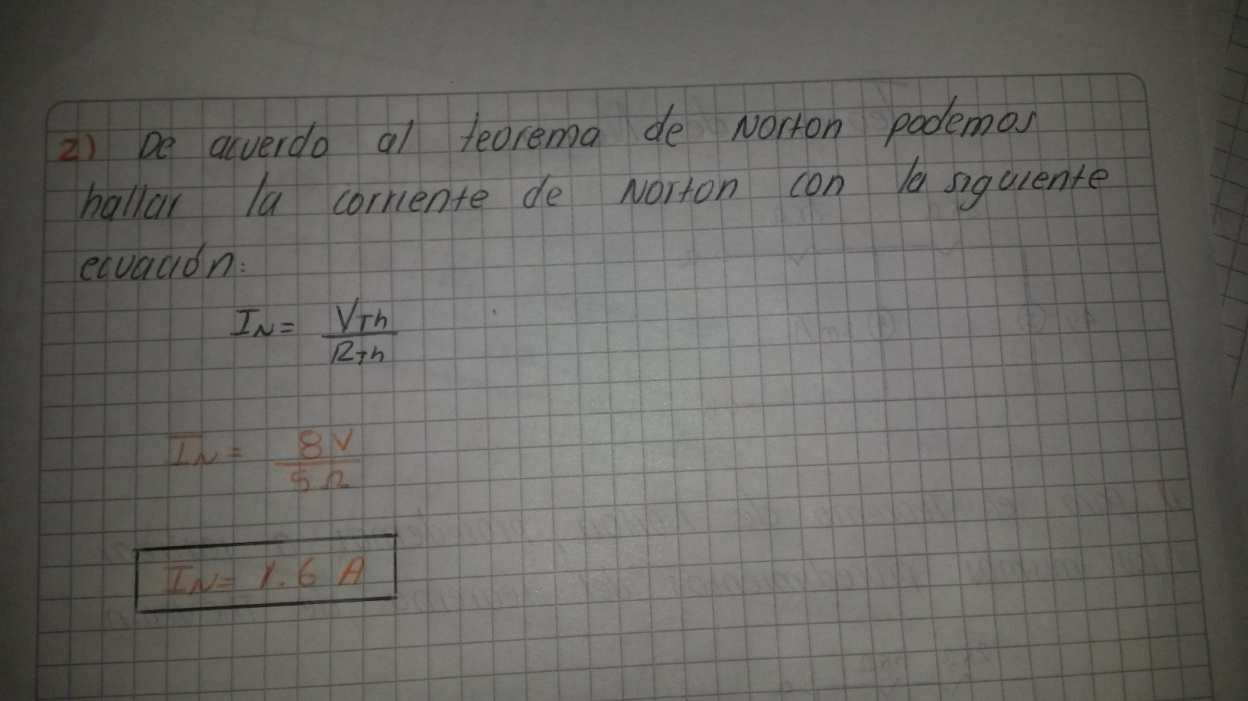 2) De acuerdo al teorema de Norton podemos
hallar la corriente de Norton con la siguiente
ecuación:
IN = VTh / RTh
IN = 8 V / 5 Ω
IN = 1.6 A